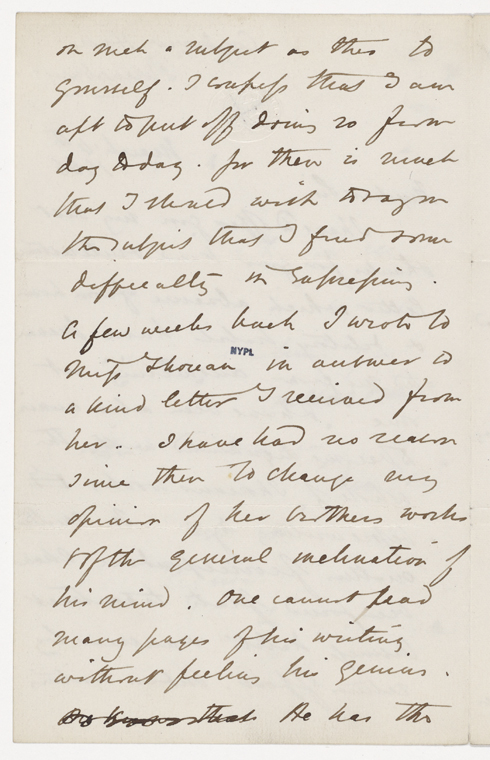 on such a subject as this to
yourself. I confess that I am
apt to put off doing so from
day to day. for there is much
that I should wish to say on
the subject that I find some
difficulty in expressing.
A few weeks back I wrote to
Miss Thoreau in answer to
NYPL
a kind letter I received from
her. I have had no reason
since then to change my
opinion of her brothers works
& of the general inclination of
his mind. One cannot read
many pages of his writing
without feeling his genius.
that He has the